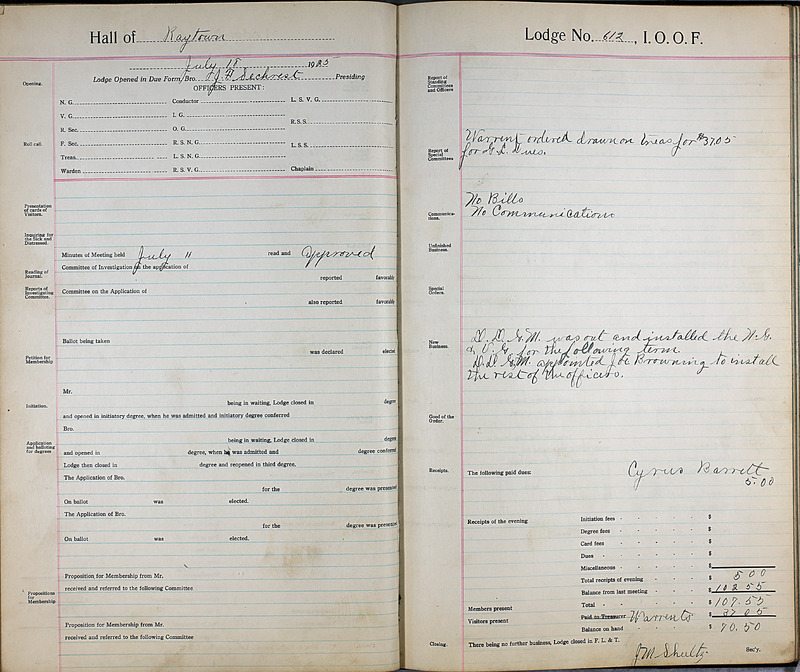 Hall of Raytown
July 18 1925
Opening.
Lodge Opened in Due Form, Bro. J. F. Sechrest Presiding
OFFICERS PRESENT:
N. G. Conductor L. S. V. G.
V. G. I. G.
R. S. S.
R. Sec. O. G.
Roll call.
F. Sec. R. S. N. G. L. S. S.
Treas. L. S. N. G.
Warden R. S. V. G. Chaplain
Presentation of cards of Visitors.
Inquiring for the Sick and Distressed.
Minutes of Meeting held July 11 read and Approved
Committee of Investigation on the application of
Reading of Journal.
reported favorably
Reports of Investigating Committee.
Committee on the Application of
also reported favorably
Ballot being taken
was declared elected
Petition for Membership
Mr.
Initiation.
being in waiting, Lodge closed in degree
and opened in initiatory degree, when he was admitted and initiatory degree conferred
Bro.
Application and balloting for degrees
being in waiting, Lodge closed in degree
and opened in degree, when he was admitted and degree conferred
Lodge then closed in degree and reopened in third degree.
The Application of Bro.
for the degree was presented
On ballot was elected.
The Application of Bro.
for the degree was presented
On ballot was elected.
Proposition for Membership from Mr.
received and referred to the following Committee
Propositions for Membership
Proposition for Membership from Mr.
received and referred to the following Committee
Lodge No. 612, I. O. O. F.
Report of Standing Committees and Officers
Report of Special Committees
Warrent ordered drawn on treas for $37.05
for G. L. Dues.
No Bills
Communications.
No Communications
Unfinished Business.
Special Orders.
New Business.
D. D. G. M. was out and installed the N. G.
& V. G. for the following term
D. D. G. M. appointed Joe Browning to install
the rest of the officers.
Good of the Order.
Receipts.
The following paid dues: Cyrus Barrett
5.00
Receipts of the evening
Initiation fees - $
Degree fees - $
Card fees $
Dues - $
Miscellaneous - $
Total receipts of evening - $ 5 00
Balance from last meeting - $ 102 55
Members present
Total - $ 107.55
Visitors present
Paid to Treasurer Warrents $ 37 05
Balance on hand - $ 70.50
Closing.
There being no further business, Lodge closed in F. L. & T.
J M Shultz. Sec'y.